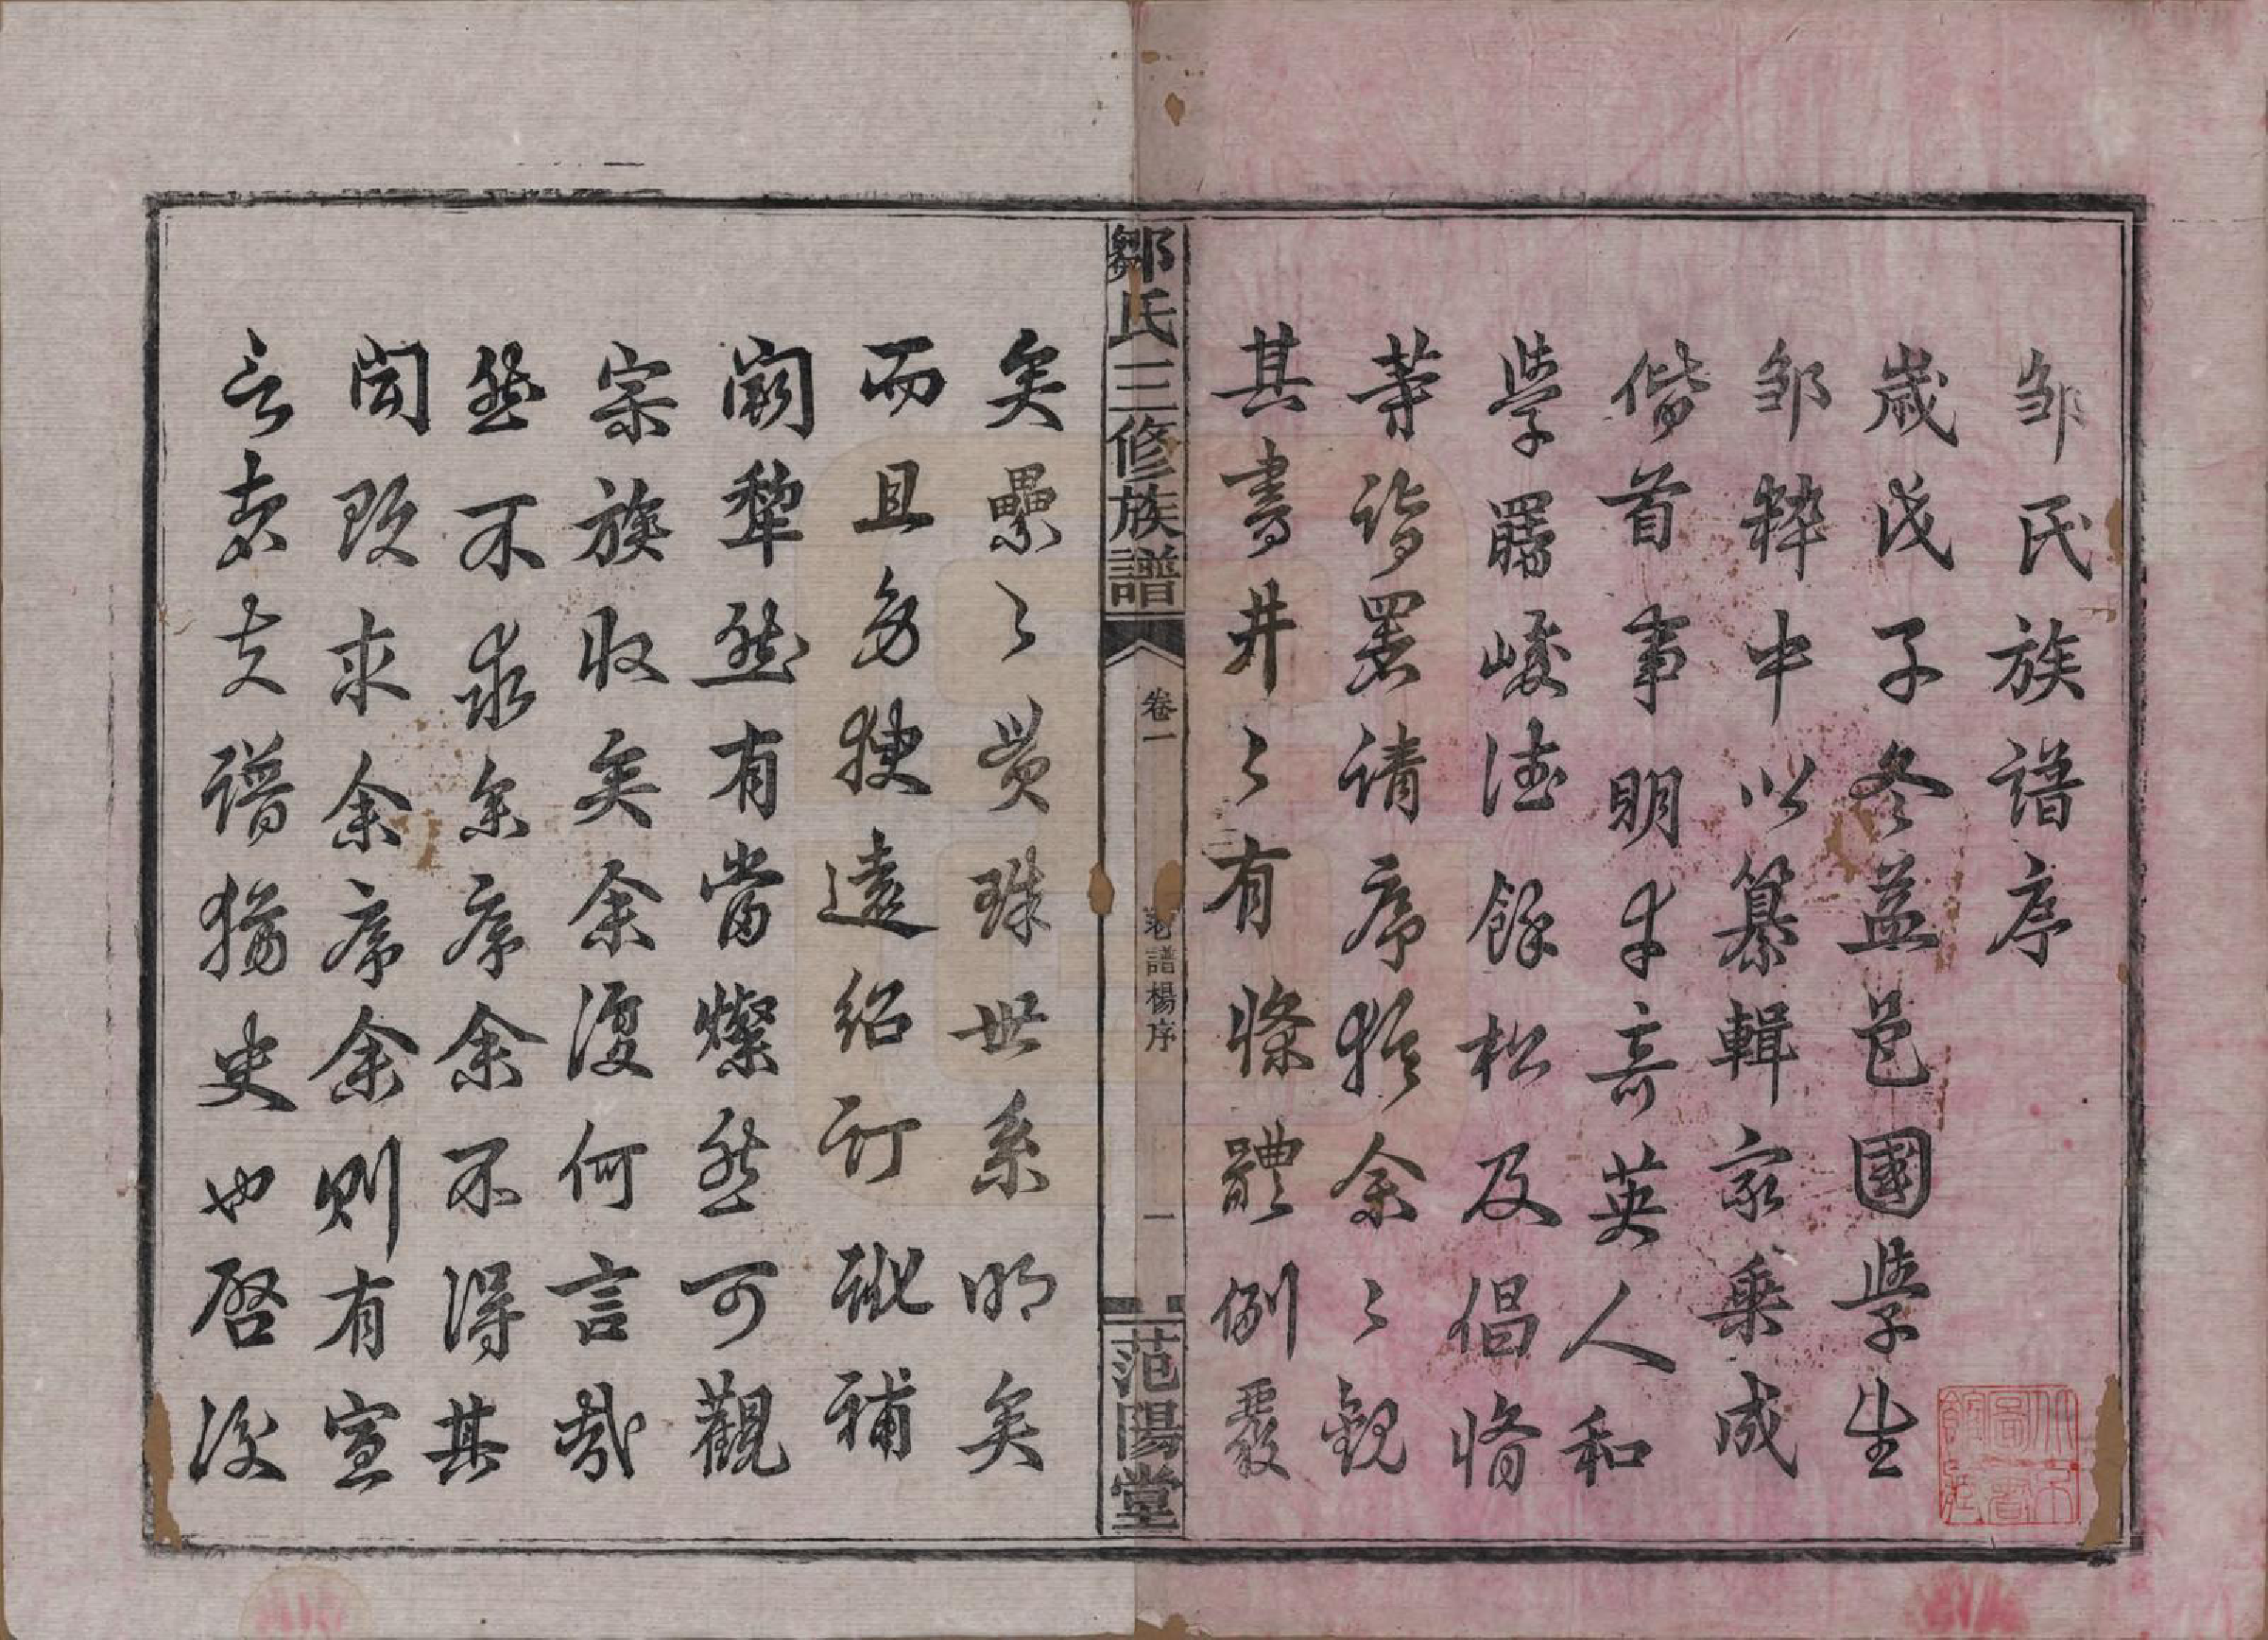 邹氏族譜序
歲戊子冬益邑國學生
邹粹中以纂輯家乘成
偕首事明才奇英人和
學曙峻德餘松及倡脩
等詣署請序於余余觀
其書井井有條體例嚴
矣纍纍貫珠世系明矣
而且務狹遠紹訂訛補
闕犂然有當燦然可觀
宗族收矣余復何言哉
然不求余序余不得其
閱既求余序余則有宣
言者夫譜猶史也啓後
鄒氏三修族譜
卷一
老譜楊序
一
范陽堂